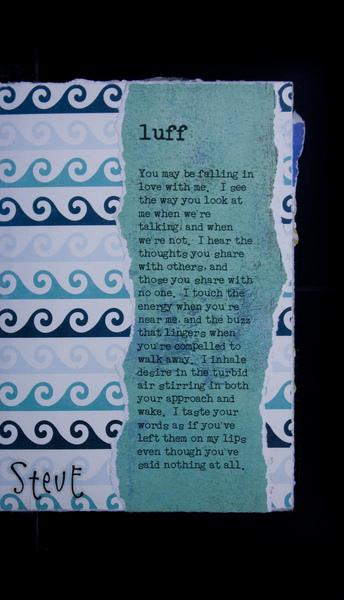 luff
You may be falling in
love with me.  I see
the way you look at
me when we're
talking, and when
we're not.  I hear the
thoughts you share
with others, and
those you share with
no one.  I touch the
energy when you're
near me, and the buzz
that lingers when
you're compelled to
walk away.  I inhale
desire in the turbid
air stirring in both
your approach and
wake.  I taste your
words as if you've
left them on my lips
even though you've
said nothing at all.
StevE